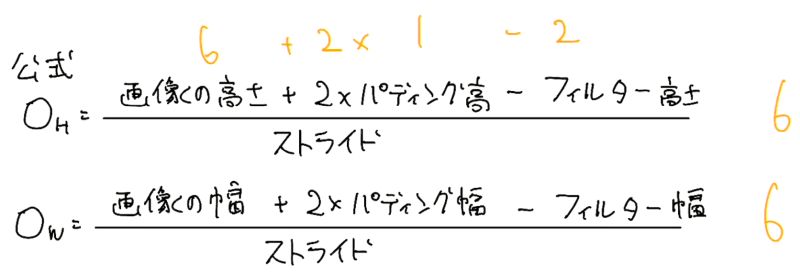 6 + 2 × 1 - 2
公式
O_H = 画像の高さ + 2×パディング高 - フィルター高さ 6
ストライド
O_W = 画像の幅 + 2×パディング幅 - フィルター幅 6
ストライド